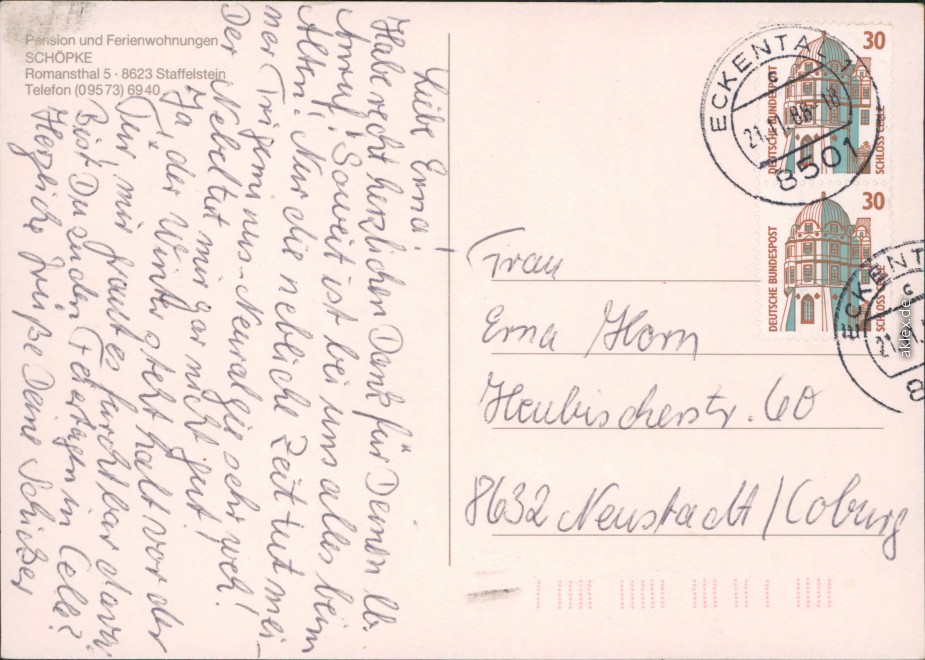 Pension und Ferienwohnungen
SCHÖPKE
Romansthal 5 · 8623 Staffelstein
Telefon (09573) 6940
Liebe Erna!
Habe recht herzlichen Dank für Deinen lb.
Anruf! Soweit ist bei uns alles beim
Alten! Nur die neblige Zeit tut mei-
ner Trigeminus-Neuralgie sehr weh!
Der Nebel tut mir gar nicht gut!
Ja, der Winter steht halt vor der
Tür, mir graut es furchtbar davor.
Bist Du zu den Feiertagen in Celle?
Herzliche Grüße Deine
Frau
Erna Horn
Heubischerstr. 60
8632 Neustadt / Coburg
30
DEUTSCHE BUNDESPOST
SCHLOSS CELLE
30
DEUTSCHE BUNDESPOST
SCHLOSS
ECKENTAL 1
c
8501
ECKENT
c
8
aklex.de